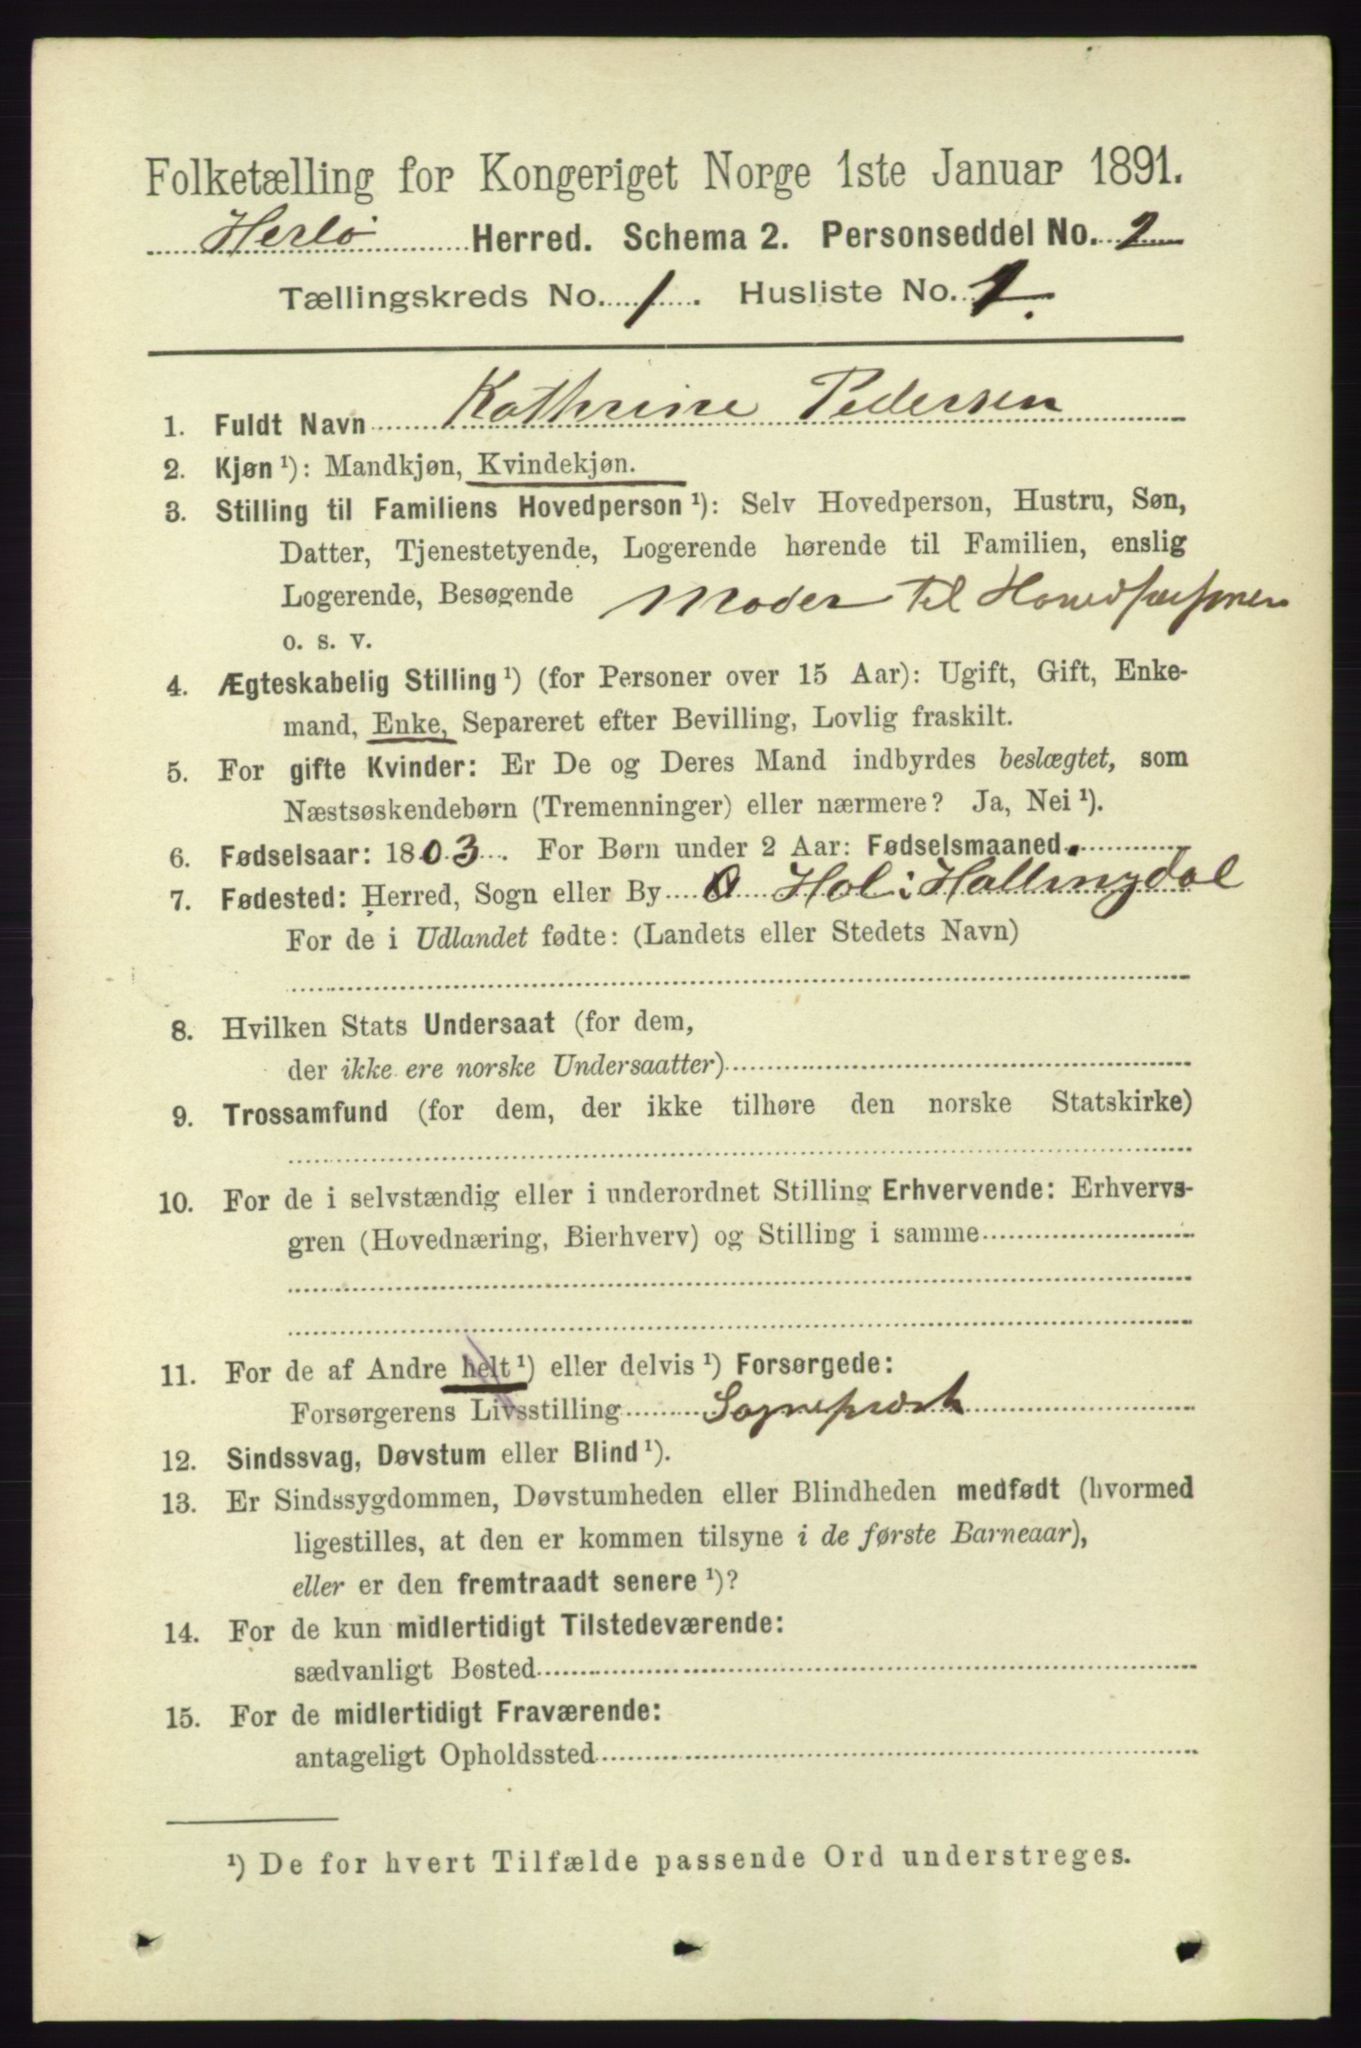 Folketælling for Kongeriget Norge 1ste Januar 1891.
Herlø Herred. Schema 2. Personseddel No. 2
Tællingskreds No. 1. Husliste No. 1.
1. Fuldt Navn Kathrine Pedersen
2. Kjøn ¹): Mandkjøn, Kvindekjøn.
3. Stilling til Familiens Hovedperson ¹): Selv Hovedperson, Hustru, Søn,
Datter, Tjenestetyende, Logerende hørende til Familien, enslig
Logerende, Besøgende Moder til Hovedpersonen
o. s. v.
4. Ægteskabelig Stilling ¹) (for Personer over 15 Aar): Ugift, Gift, Enke-
mand, Enke, Separeret efter Bevilling, Lovlig fraskilt.
5. For gifte Kvinder: Er De og Deres Mand indbyrdes beslægtet, som
Næstsøskendebørn (Tremenninger) eller nærmere? Ja, Nei ¹).
6. Fødselsaar: 1803. For Børn under 2 Aar: Fødselsmaaned
7. Fødested: Herred, Sogn eller By Hol i Hallingdal
For de i Udlandet fødte: (Landets eller Stedets Navn)
8. Hvilken Stats Undersaat (for dem,
der ikke ere norske Undersaatter)
9. Trossamfund (for dem, der ikke tilhøre den norske Statskirke)
10. For de i selvstændig eller i underordnet Stilling Erhvervende: Erhvervs-
gren (Hovednæring, Bierhverv) og Stilling i samme
11. For de af Andre helt ¹) eller delvis ¹) Forsørgede:
Forsørgerens Livsstilling Sognepræst
12. Sindssvag, Døvstum eller Blind ¹).
13. Er Sindssygdommen, Døvstumheden eller Blindheden medfødt (hvormed
ligestilles, at den er kommen tilsyne i de første Barneaar),
eller er den fremtraadt senere ¹)?
14. For de kun midlertidigt Tilstedeværende:
sædvanligt Bosted
15. For de midlertidigt Fraværende:
antageligt Opholdssted
¹) De for hvert Tilfælde passende Ord understreges.